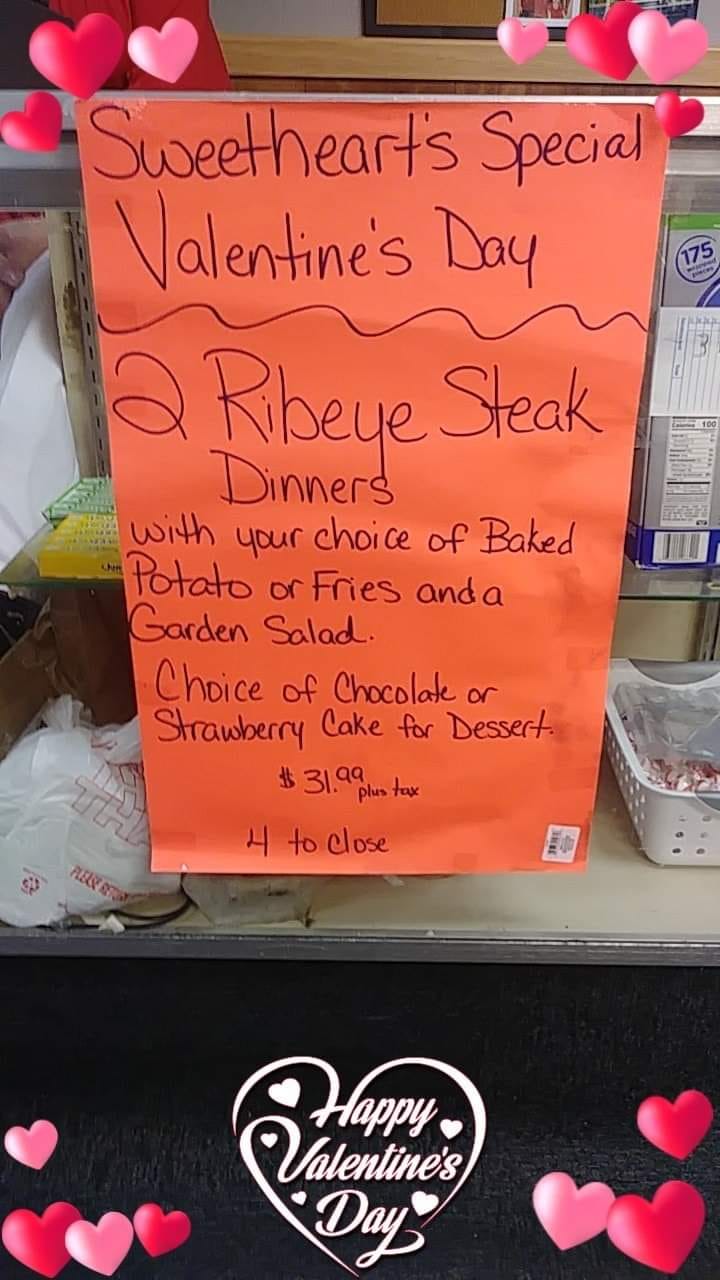 Sweetheart's Special
Valentine's Day
2 Ribeye Steak
Dinners
with your choice of Baked
Potato or Fries and a
Garden Salad.
Choice of Chocolate or
Strawberry Cake for Dessert.
$31.99 plus tax
4 to close
175
wrapped
pieces
Calories 100
TH
PLEASE RETURN
Happy
Valentine's
Day